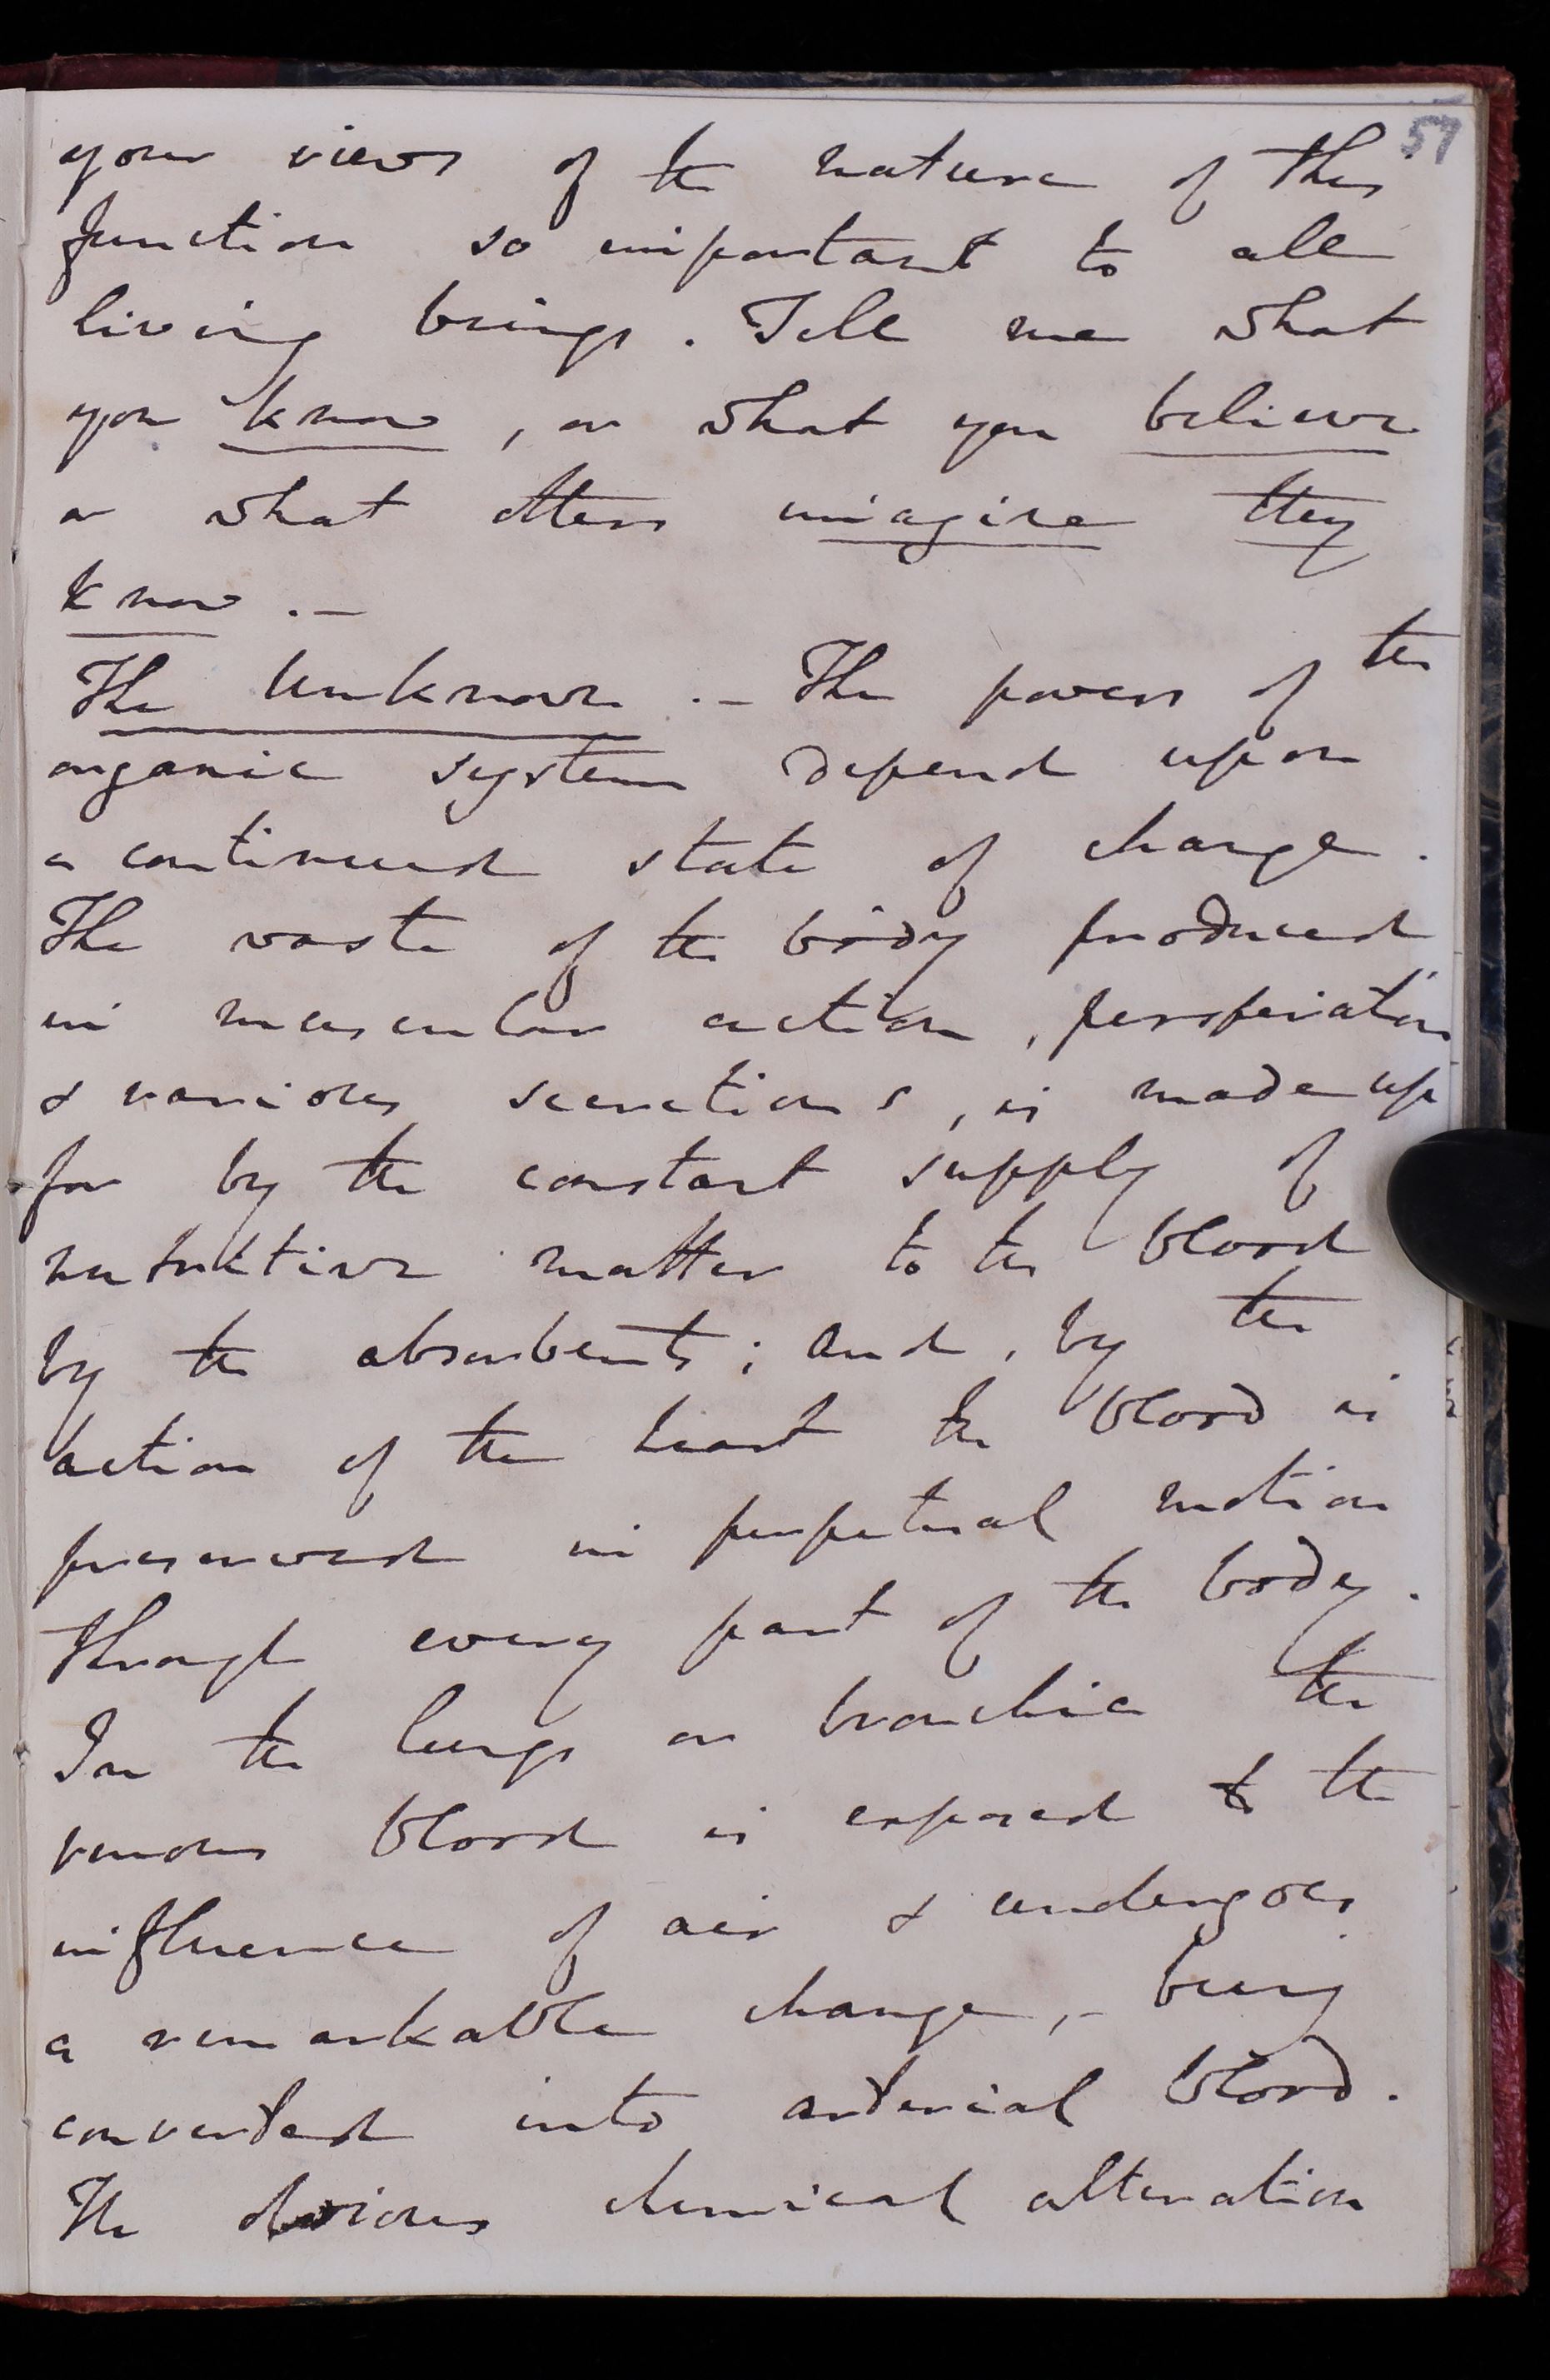 57
your views of the nature of this
function so important to all
living beings. Tell me what
you know, or what you believe
or what others imagine they
know. —
The Unknown. — The powers of the
organic system depend upon
a continued state of change.
The waste of the body produced
in muscular action, perspiration
& various secretions, is made up
for by the constant supply of
nutritive matter to the blood
by the absorbents; and, by the
action of the heart the blood is
preserved in perpetual motion
through every part of the body.
In the lungs or bronchia the
venous blood is exposed to the
influence of air & undergoes
a remarkable change, — being
converted into arterial blood.
The obvious chemical alteration